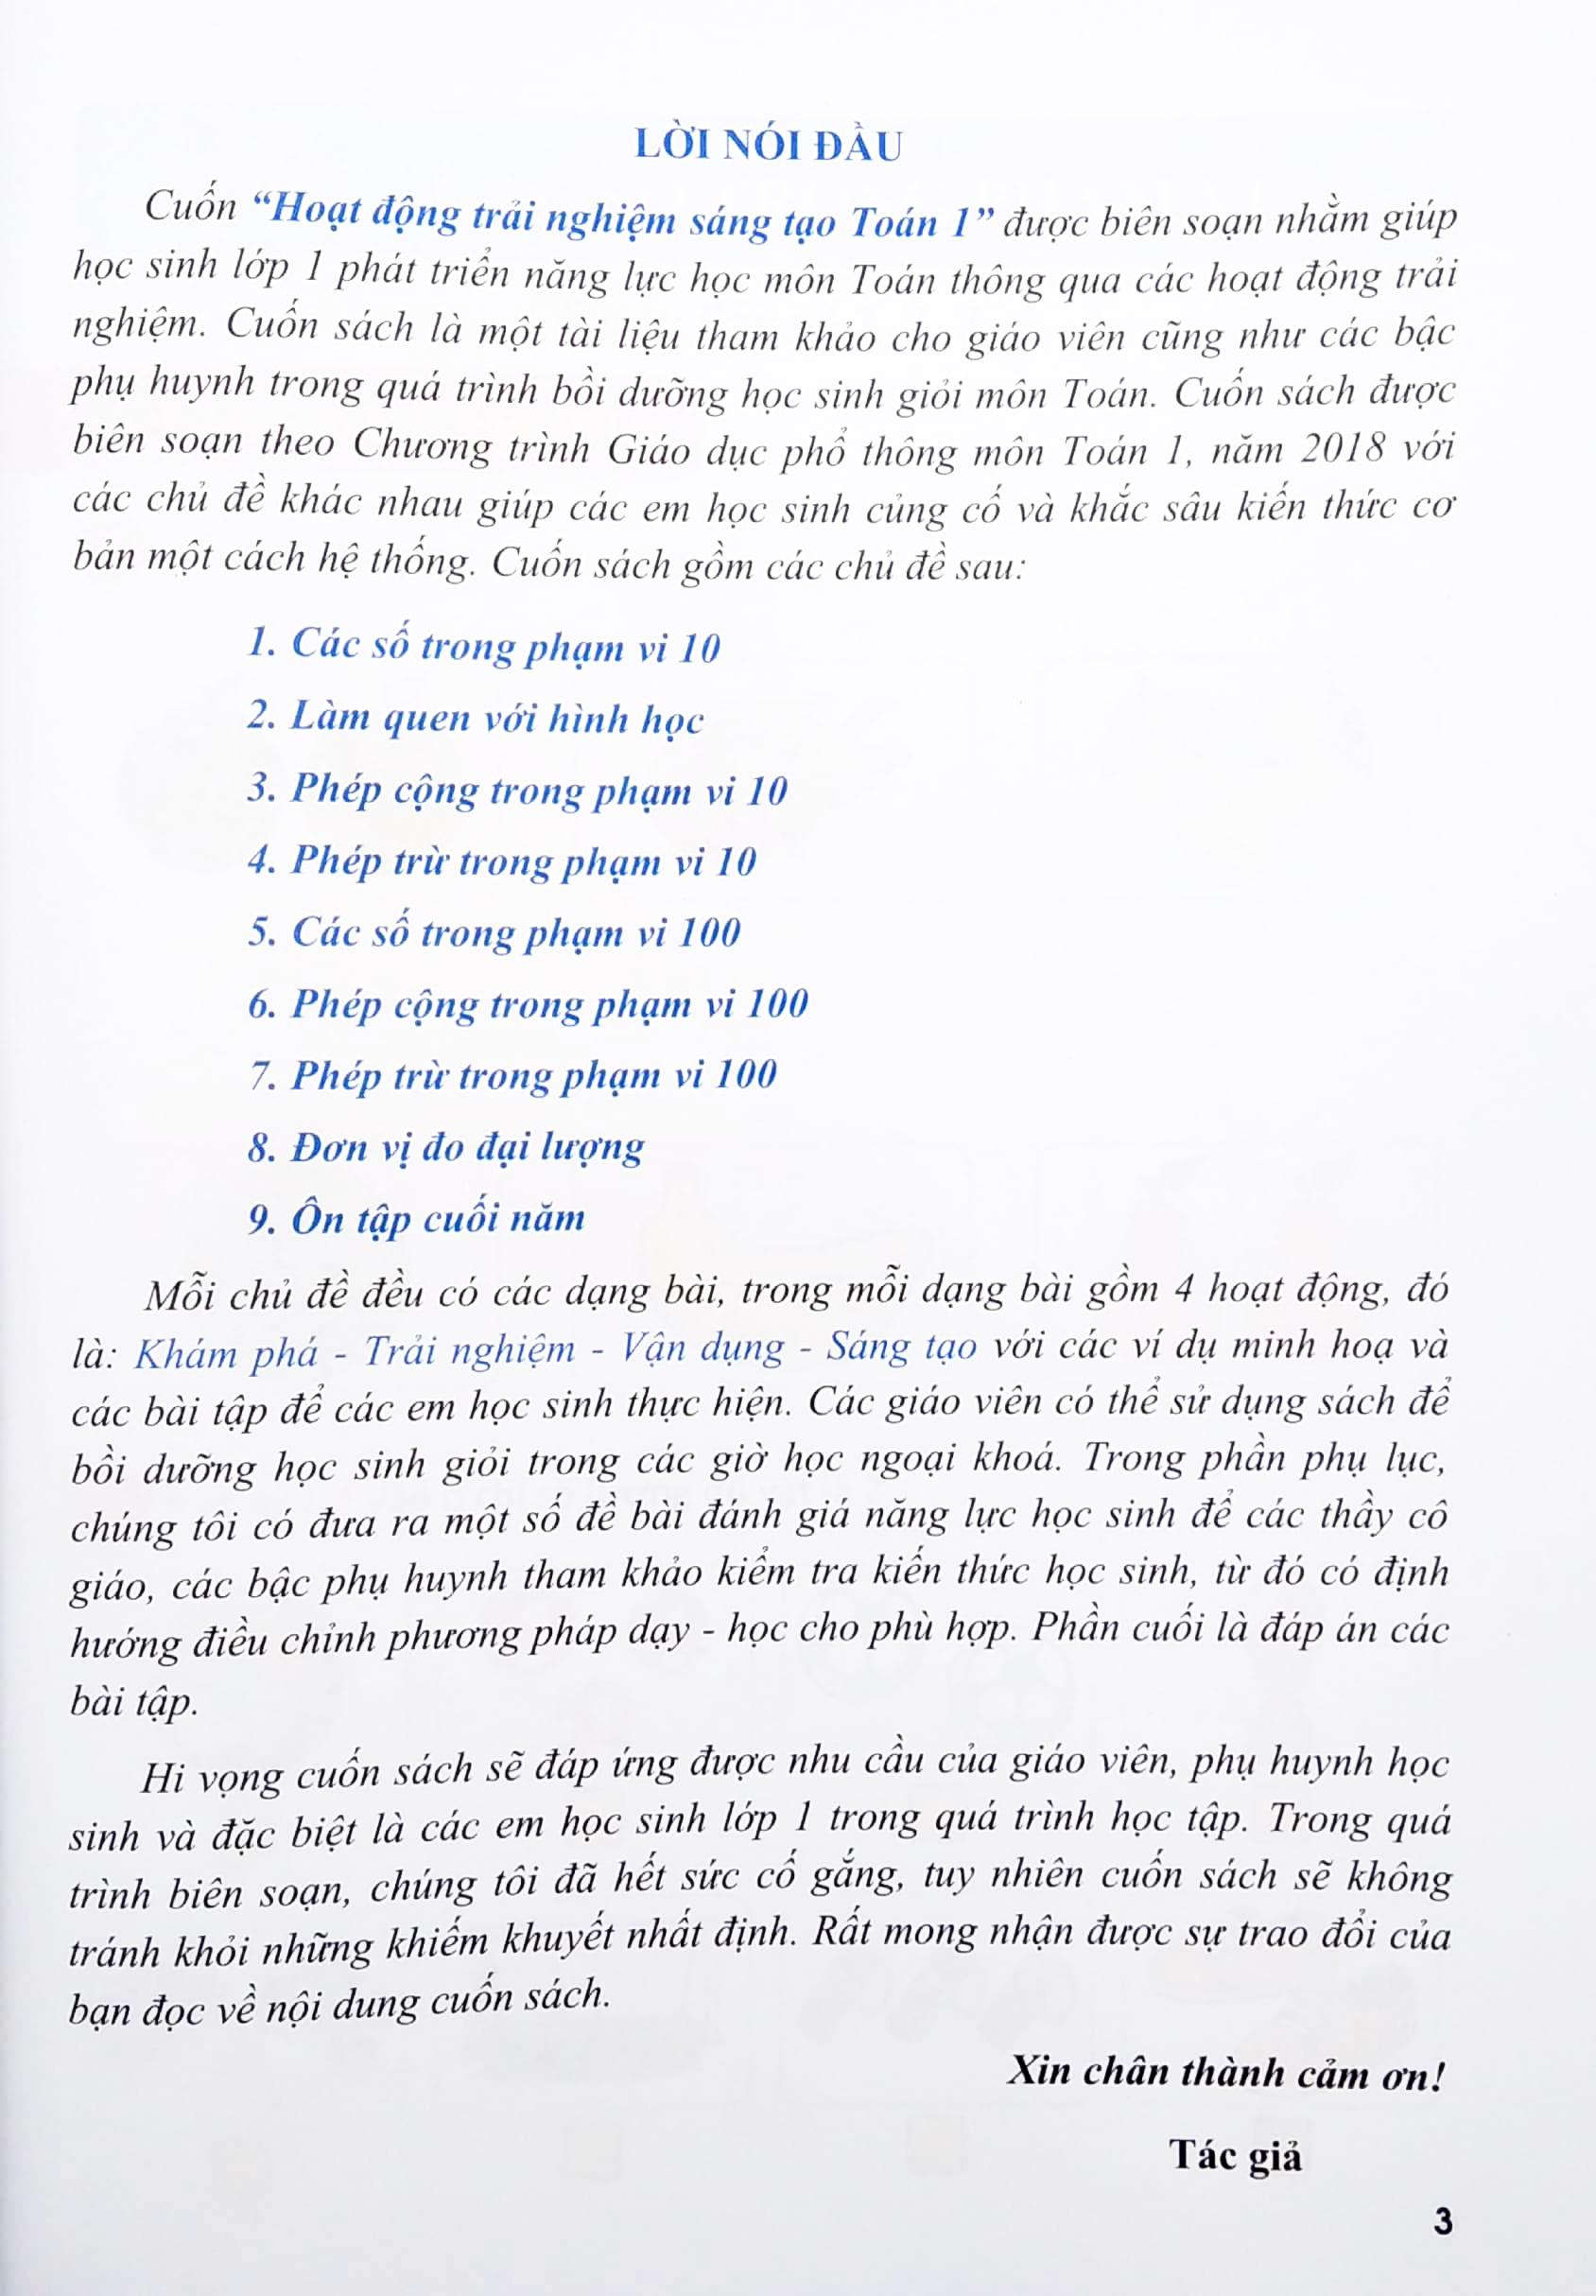 LỜI NÓI ĐẦU
Cuốn “Hoạt động trải nghiệm sáng tạo Toán 1” được biên soạn nhằm giúp
học sinh lớp 1 phát triển năng lực học môn Toán thông qua các hoạt động trải
nghiệm. Cuốn sách là một tài liệu tham khảo cho giáo viên cũng như các bậc
phụ huynh trong quá trình bồi dưỡng học sinh giỏi môn Toán. Cuốn sách được
biên soạn theo Chương trình Giáo dục phổ thông môn Toán 1, năm 2018 với
các chủ đề khác nhau giúp các em học sinh củng cố và khắc sâu kiến thức cơ
bản một cách hệ thống. Cuốn sách gồm các chủ đề sau:
1. Các số trong phạm vi 10
2. Làm quen với hình học
3. Phép cộng trong phạm vi 10
4. Phép trừ trong phạm vi 10
5. Các số trong phạm vi 100
6. Phép cộng trong phạm vi 100
7. Phép trừ trong phạm vi 100
8. Đơn vị đo đại lượng
9. Ôn tập cuối năm
Mỗi chủ đề đều có các dạng bài, trong mỗi dạng bài gồm 4 hoạt động, đó
là: Khám phá - Trải nghiệm - Vận dụng - Sáng tạo với các ví dụ minh hoạ và
các bài tập để các em học sinh thực hiện. Các giáo viên có thể sử dụng sách để
bồi dưỡng học sinh giỏi trong các giờ học ngoại khoá. Trong phần phụ lục,
chúng tôi có đưa ra một số đề bài đánh giá năng lực học sinh để các thầy cô
giáo, các bậc phụ huynh tham khảo kiểm tra kiến thức học sinh, từ đó có định
hướng điều chỉnh phương pháp dạy - học cho phù hợp. Phần cuối là đáp án các
bài tập.
Hi vọng cuốn sách sẽ đáp ứng được nhu cầu của giáo viên, phụ huynh học
sinh và đặc biệt là các em học sinh lớp 1 trong quá trình học tập. Trong quá
trình biên soạn, chúng tôi đã hết sức cố gắng, tuy nhiên cuốn sách sẽ không
tránh khỏi những khiếm khuyết nhất định. Rất mong nhận được sự trao đổi của
bạn đọc về nội dung cuốn sách.
Xin chân thành cảm ơn!
Tác giả
3